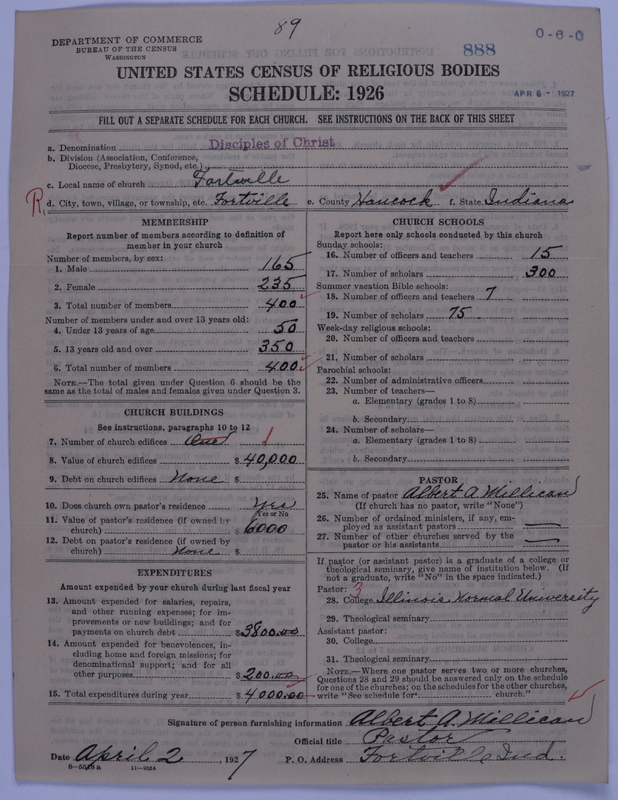 89
DEPARTMENT OF COMMERCE
BUREAU OF THE CENSUS
WASHINGTON
888
0-6-0
UNITED STATES CENSUS OF RELIGIOUS BODIES
SCHEDULE: 1926
APR 6 - 1927
FILL OUT A SEPARATE SCHEDULE FOR EACH CHURCH. SEE INSTRUCTIONS ON THE BACK OF THIS SHEET
a. Denomination Disciples of Christ
b. Division (Association, Conference,
Diocese, Presbytery, Synod, etc.)
c. Local name of church Fortville
R d. City, town, village, or township, etc. Fortville e. County Hancock f. State Indiana
MEMBERSHIP
Report number of members according to definition of
member in your church
Number of members, by sex:
1. Male 165
2. Female 235
3. Total number of members 400
Number of members under and over 13 years old:
4. Under 13 years of age 50
5. 13 years old and over 350
6. Total number of members 400
NOTE.—The total given under Question 6 should be the
same as the total of males and females given under Question 3.
CHURCH BUILDINGS
See instructions, paragraphs 10 to 12
7. Number of church edifices One 1
8. Value of church edifices $ 40,000
9. Debt on church edifices None $
10. Does church own pastor's residence Yes
Yes or No
11. Value of pastor's residence (if owned by
church) $ 6000
12. Debt on pastor's residence (if owned by
church) None $
EXPENDITURES
Amount expended by your church during last fiscal year
13. Amount expended for salaries, repairs,
and other running expenses; for im-
provements or new buildings; and for
payments on church debt $3800.00
14. Amount expended for benevolences, in-
cluding home and foreign missions; for
denominational support; and for all
other purposes $ 200.00
15. Total expenditures during year $ 4000.00
CHURCH SCHOOLS
Report here only schools conducted by this church
Sunday schools:
16. Number of officers and teachers 15
17. Number of scholars 300
Summer vacation Bible schools:
18. Number of officers and teachers 7
19. Number of scholars 75
Week-day religious schools:
20. Number of officers and teachers
21. Number of scholars
Parochial schools:
22. Number of administrative officers
23. Number of teachers—
a. Elementary (grades 1 to 8)
b. Secondary
24. Number of scholars—
a. Elementary (grades 1 to 8)
b. Secondary
PASTOR
25. Name of pastor Albert A. Millican
(If church has no pastor, write "None")
26. Number of ordained ministers, if any, em-
ployed as assistant pastors
27. Number of other churches served by the
pastor or his assistants
If pastor (or assistant pastor) is a graduate of a college or
theological seminary, give name of institution below. (If
not a graduate, write "No" in the space indicated.)
Pastor: 3
28. College Illinois Normal University
29. Theological seminary
Assistant pastor:
30. College
31. Theological seminary
NOTE.—Where one pastor serves two or more churches,
Questions 28 and 29 should be answered only on the schedule
for one of the churches; on the schedules for the other churches,
write "See schedule for church."
Signature of person furnishing information Albert A. Millican
Official title Pastor
Date April 2, 1927 P. O. Address Fortville Ind.